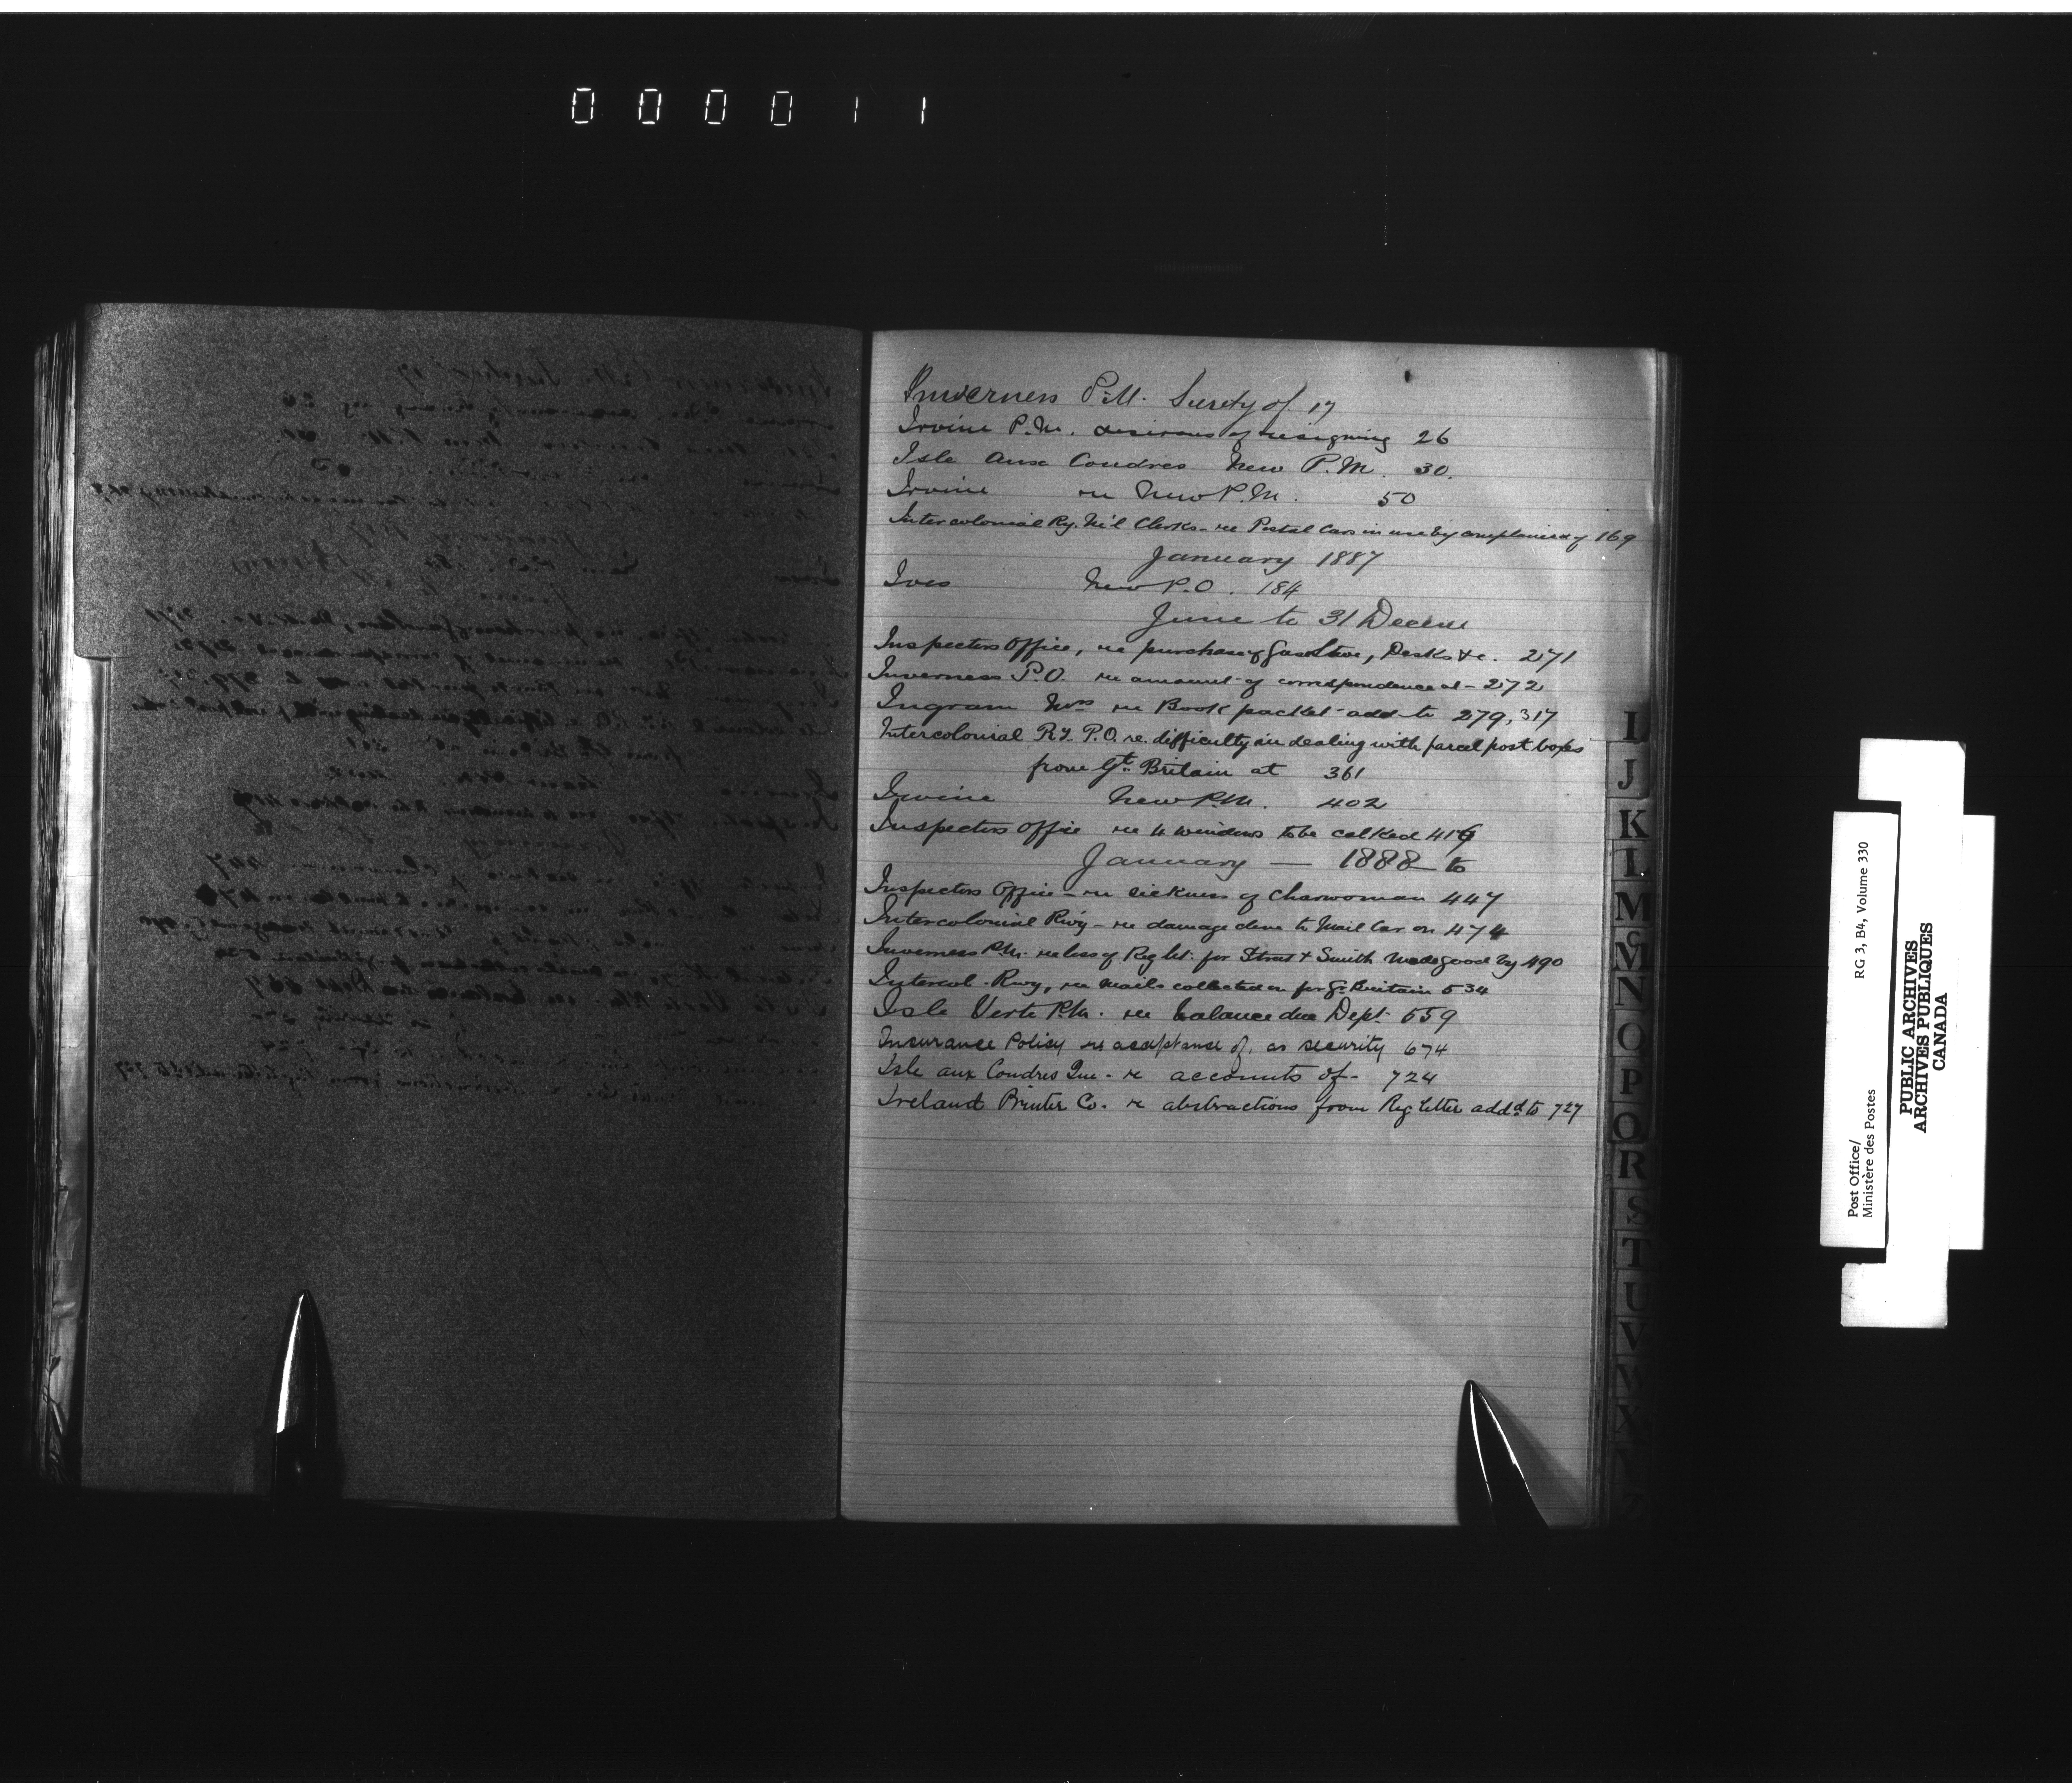 000011
Inverness P.M. Surety of 17
Irvine P.M. desirous of resigning 26
Isle Aux Coudres New P.M. 30.
Irvine re New P.M. 50
Intercolonial Ry. Ml Clerks - re Postal Cars in use by complained of 169
January 1887
Ives New P.O. 184
June to 31 Decem
Inspectors Office, re purchase of Gas Stove, Desks &c. 271
Inverness P.O. re amount of correspondence at - 272
Ingram Mrs re Book packet add to 279, 317
Intercolonial Ry. P.O. re. difficulty in dealing with parcel post boxes
from Gt. Britain at 361
Irvine New P.M. 402
Inspectors Office re 4 windows to be calked 416
January — 1888 to
Inspectors Office - re sickness of Charwoman 447
Intercolonial Rwy - re damage done to Mail Car on 474
Inverness P.M. re loss of Reg let. for Street & Smith made good by 490
Intercol. Rwy, re mails collected on for Gt Britain 534
Isle Verte P.M. re balance due Dept. 559
Insurance Policy re acceptance of, as security 674
Isle aux Coudres Que - re accounts of - 724
Ireland Printer Co. re abstractions from Reg letter addd to 727
I
J
K
L
M
Mc
N
O
P
Q
R
S
T
U
V
W
X
Post Office/
Ministère des Postes
RG 3, B4, Volume 330
PUBLIC ARCHIVES
ARCHIVES PUBLIQUES
CANADA